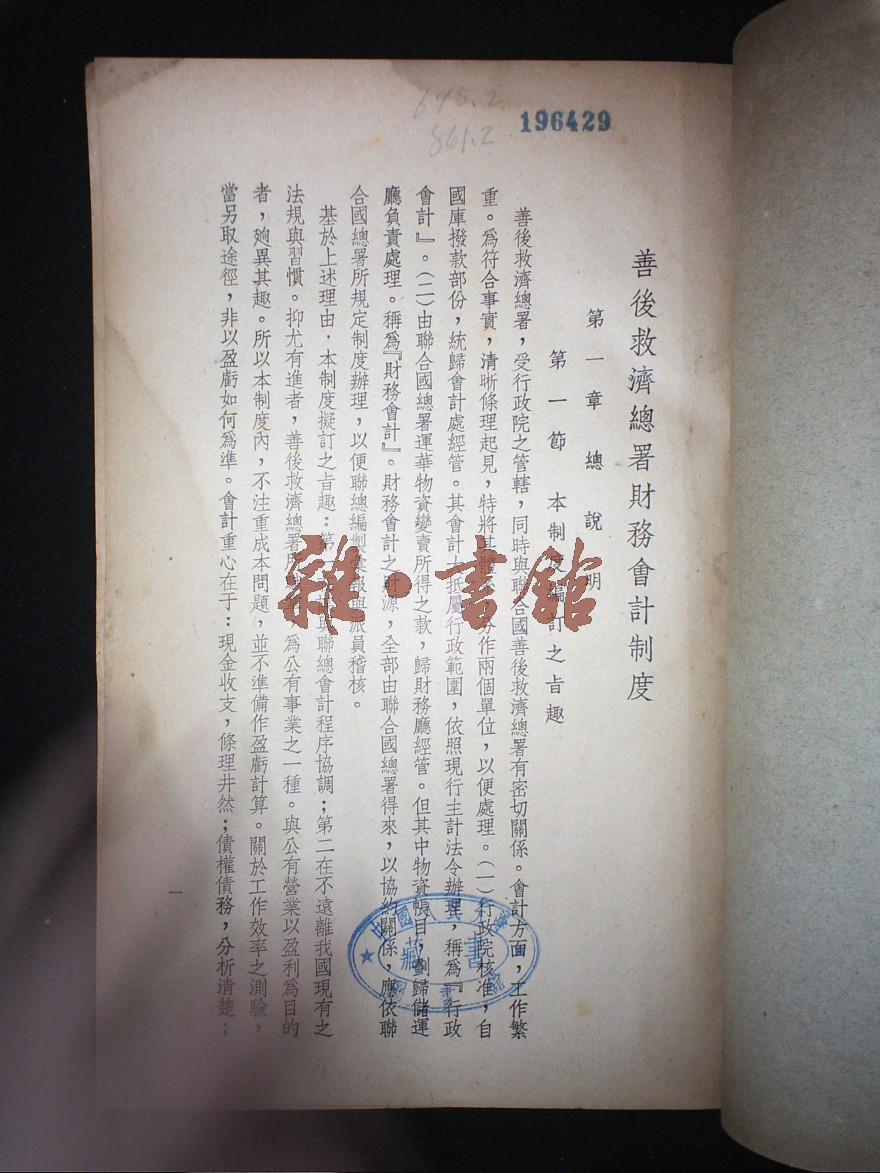 196429
善後救濟總署財務會計制度
第一章 總說明
第一節 本制度編訂之旨趣
善後救濟總署，受行政院之管轄，同時與聯合國善後救濟總署有密切關係。會計方面，工作繁
重。爲符合事實，清晰條理起見，特將其 分作兩個單位，以便處理。（一）行政院核准，自
國庫撥款部份，統歸會計處經管。其會計大抵屬行政範圍，依照現行主計法令辦理，稱爲『行政
會計』。（二）由聯合國總署運華物資變賣所得之款，歸財務廳經管。但其中物資帳目，劃歸儲運
廳負責處理。稱爲『財務會計』。財務會計之財源，全部由聯合國總署得來，以協約關係，應依聯
合國總署所規定制度辦理，以便聯總編製彙報與派員稽核。
基於上述理由，本制度擬訂之旨趣：第一 與聯總會計程序協調；第二在不遠離我國現有之
法規與習慣。抑尤有進者，善後救濟總署 爲公有事業之一種。與公有營業以盈利爲目的
者，逈異其趣。所以本制度內，不注重成本問題，並不準備作盈虧計算。關於工作效率之測驗，
當另取途徑，非以盈虧如何爲準。會計重心在于：現金收支，條理井然；債權債務，分析清楚；
一
雜·書館
藏書